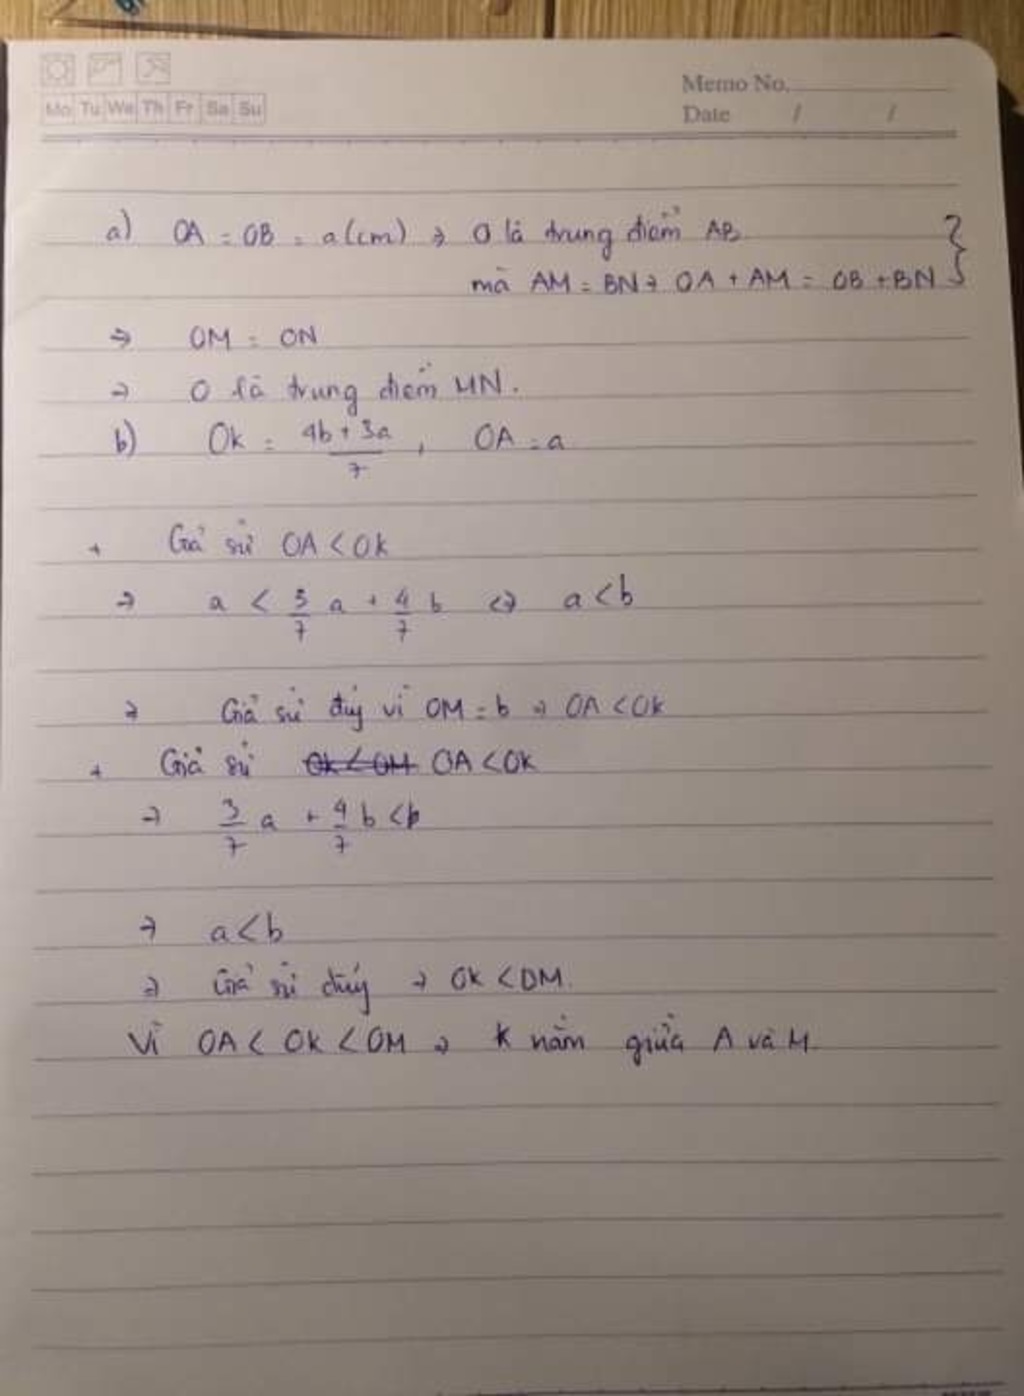 Memo No.
Mo Tu We Th Fr Sa Su
Date / /
a) OA = OB = a(cm) => O là trung điểm AB
mà AM = BN => OA + AM = OB + BN }
=> OM = ON
=> O là trung điểm MN.
b) OK = \frac{4b + 3a}{7} , OA = a
+ Giả sử OA < OK
=> a < \frac{3}{7} a + \frac{4}{7} b <=> a < b
=> Giả sử đúng vì OM = b => OA < OK
+ Giả sử ~~OK < OM~~ OA < OK
=> \frac{3}{7} a + \frac{4}{7} b < b
=> a < b
=> Giả sử đúng => OK < OM.
Vì OA < OK < OM => K nằm giữa A và M.